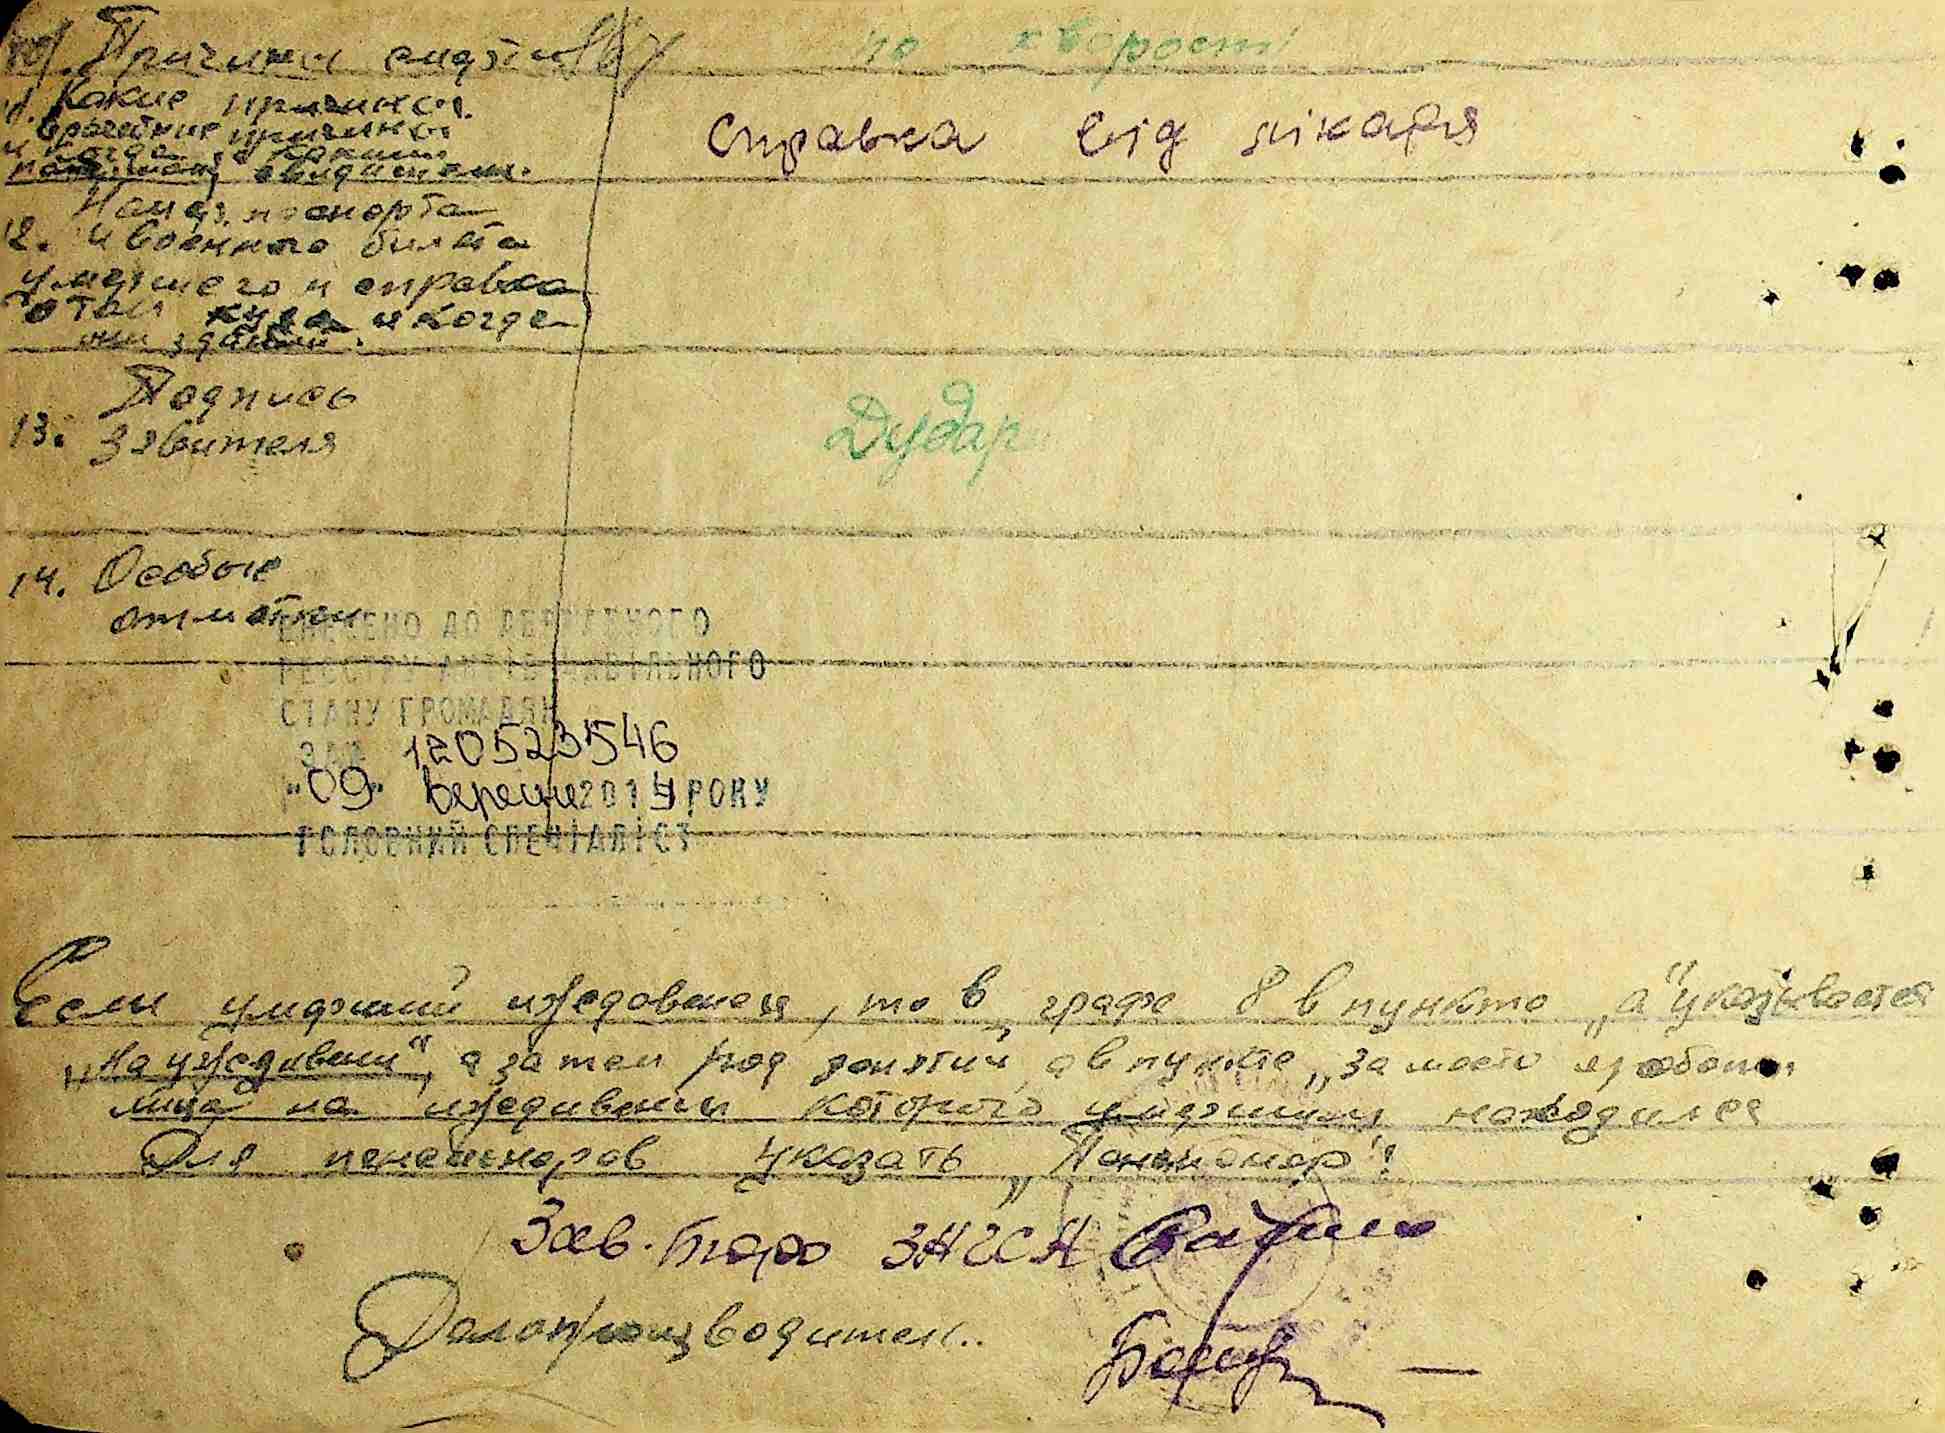 10. Причина смерти по хворості
11. Какие причины.
врачебные причины
и когда, каким
справка від лікаря
12. паспорта
и военного билета
умершего и справка
о том куда и когда
они зданы.
13. Подпись
зявителя
Дудар
14. Особые
отметки
ВНЕСЕНО ДО ДЕРЖАВНОГО
РЕЄСТРУ АКТІВ ЦИВІЛЬНОГО
СТАНУ ГРОМАДЯН
ЗА № 1205231546
"09" 201 РОКУ
ГОЛОВНИЙ СПЕЦІАЛІСТ
Если умерший иждевенец, то в графе 8 в пункте "а" указывается
"На иждивении", а затем род занятий, а в пункте, за место работы
лица на иждивении которого умерший находился
Для пенсионеров указать "Пенсионер".
Зав. бюро ЗАГСА
Делопроизводитель..